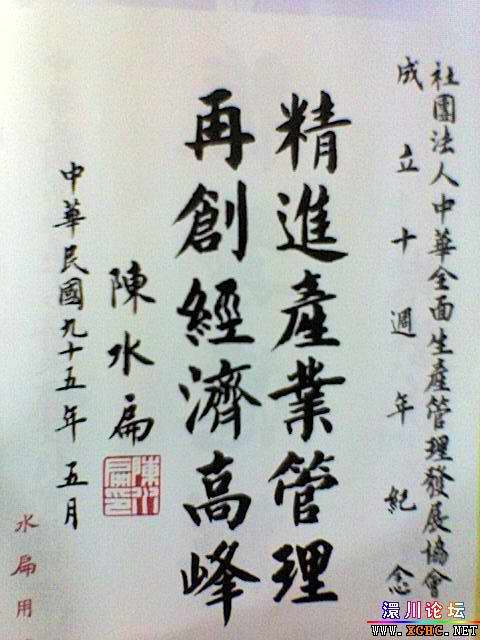 社團法人中華全面生產管理發展協會
成立十週年紀念
精進產業管理
再創經濟高峰
陳水扁
中華民國九十五年五月
水扁用
澴川论坛
www.XGHC.NET